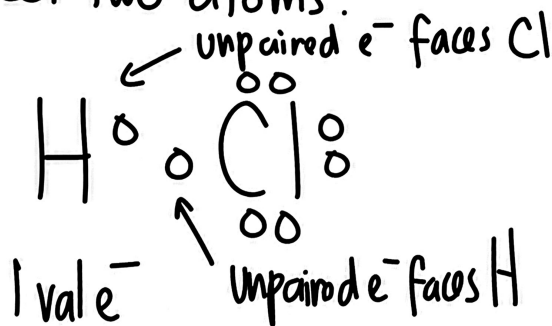 two atoms.
unpaired e⁻ faces Cl
H Cl
1 val e⁻
unpaired e⁻ faces H